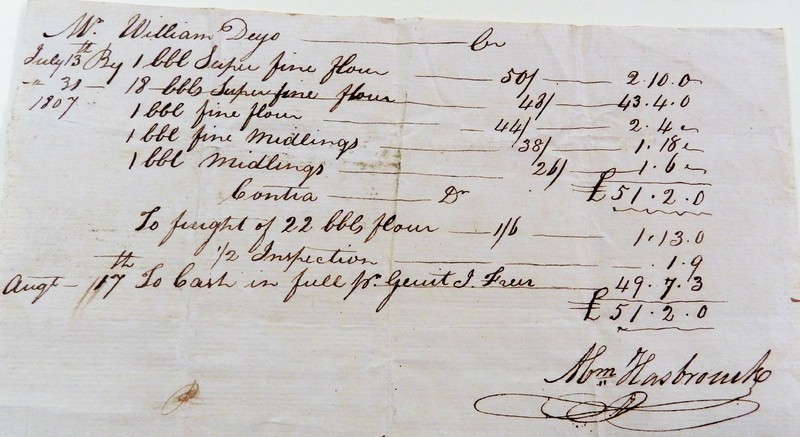 Mr. William Deyo Cr
July 13th By 1 bbl Super fine flour 50/ 2.10.0
" 30 18 bbls Superfine flour 48/ 43.4.0
1807 1 bbl fine flour 44/ 2.4"
1 bbl fine Midlings 38/ 1.18"
1 bbl Midlings 26/ 1.6"
Contra Dr £51.2.0
To freight of 22 bbls flour 1/6 1.13.0
1/2 Inspection 1.9
Augt 17th To Cash in full pr. Gerrit I. Freer 49.7.3
£51.2.0
Abm Hasbrouck